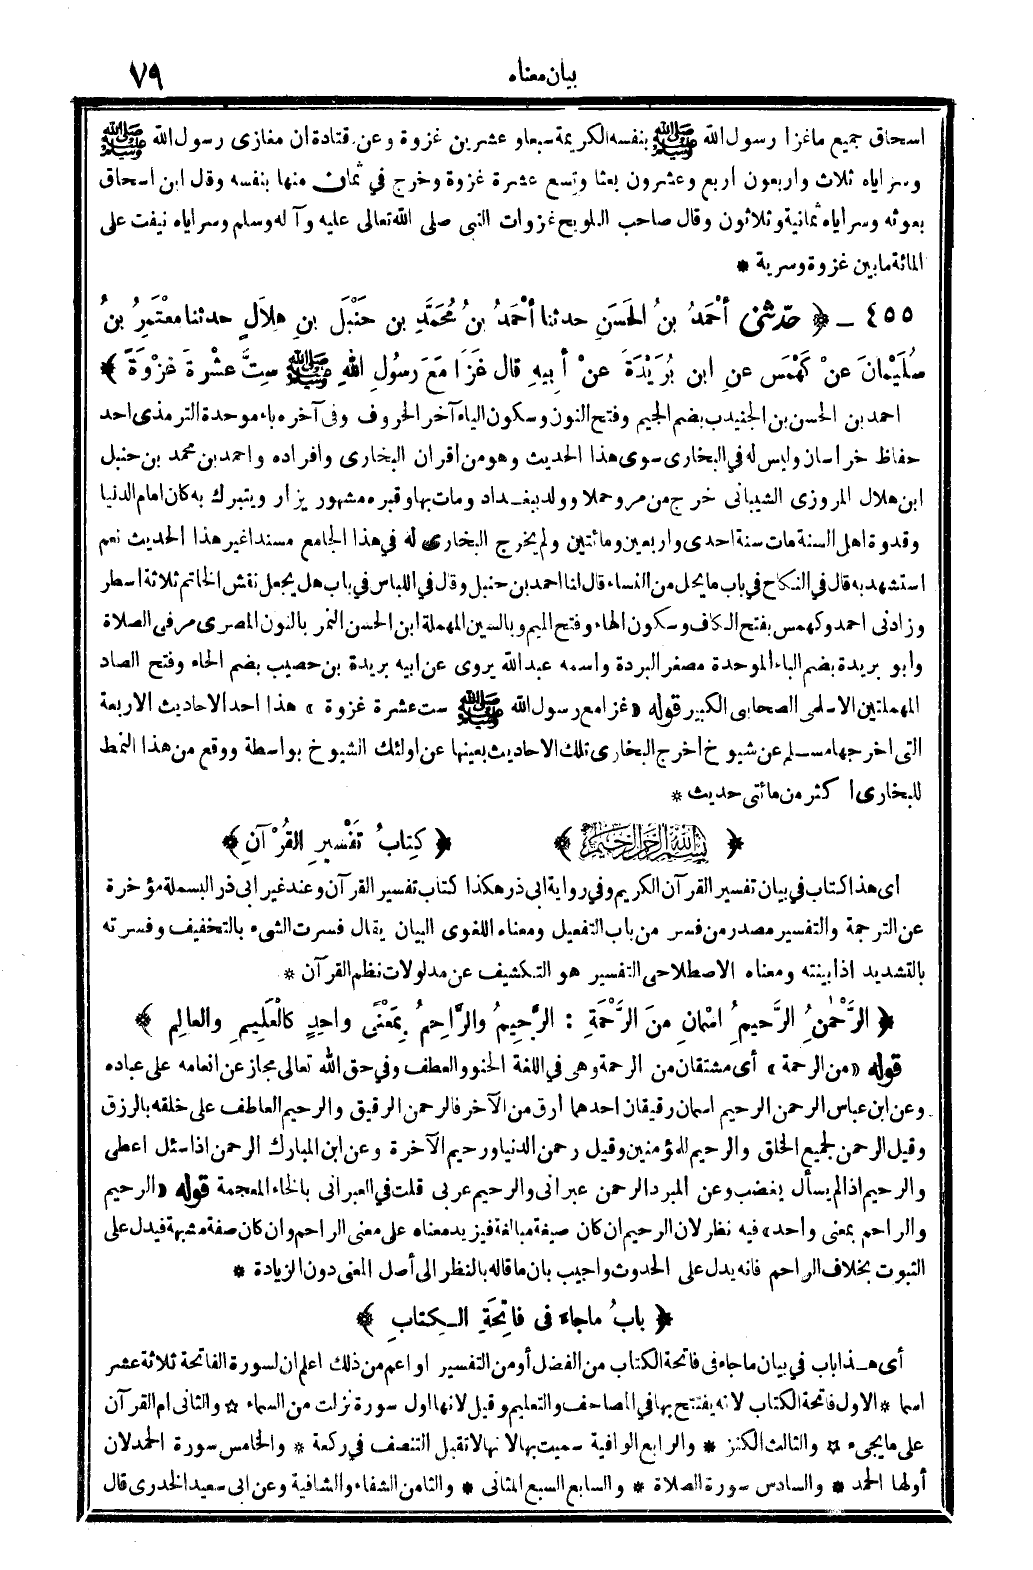 بيان معناه ٧٩
اسحاق جميع ماغزا رسول الله ﷺ بنفسه الكريمة سبعا وعشرين غزوة وعن قتادة ان مغازى رسول الله ﷺ
وسراياه ثلاث واربعون اربع وعشرون بعثا وتسع عشرة غزوة وخرج في ثمان منها بنفسه وقال ابن اسحاق
بعوثه وسراياه ثمانية وثلاثون وقال صاحب التلويح غزوات النبى صلى الله تعالى عليه وآله وسلم وسراياه نيفت على
المائة مابين غزوة وسرية *
٤٥٥ ـ ﴿ حدّثني أحْمَدُ بنُ الحَسَنِ حدثنا أحْمَدُ بنُ مُحَمَّدِ بن حَنْبَلِ بنِ هِلاَلٍ حدثنا مُعْتَمِرُ بنُ
سُلَيْمَانَ عنْ كَهْمَسٍ عنِ ابنِ بُرَيْدَةَ عنْ أبيهِ قال غَزَا مَعَ رسُولِ اللهِ ﷺ سِتَّ عشْرةَ غزْوَةً ﴾
احمد بن الحسن بن الجنيدب بضم الجيم وفتح النون وسكون الياء آخر الحروف وفى آخره باء موحدة الترمذى احد
حفاظ خراسان وليس له في البخارى سوى هذا الحديث وهو من اقران البخارى وافراده واحمد بن محمد بن حنبل
ابن هلال المروزى الشيبانى خرج من مرو حملا وولد ببغداد ومات بها وقبره مشهور يزار ويتبرك به كان امام الدنيا
وقدوة اهل السنة مات سنة احدى واربعين ومائتين ولم يخرج البخارى له في هذا الجامع مسندا غير هذا الحديث نعم
استشهد به قال في النكاح في باب مايحل من النساء قال لنا احمد بن حنبل وقال في اللباس في باب هل يجعل نقش الخاتم ثلاثة اسطر
وزادنى احمد وكهمس بفتح الكاف وسكون الهاء وفتح الميم وبالسين المهملة ابن الحسن النمر بالنون المصرى مر فى الصلاة
وابو بريدة بضم الباء الموحدة مصغر البردة واسمه عبد الله يروى عن ابيه بريدة بن حصيب بضم الحاء وفتح الصاد
المهملتين الاسلمى الصحابى الكبير قوله «غزا مع رسول الله ﷺ ست عشرة غزوة» هذا احد الاحاديث الاربعة
التى اخرجها مسلم عن شيوخ اخرج البخارى تلك الاحاديث بعينها عن اولئك الشيوخ بواسطة ووقع من هذا النمط
للبخارى اكثر من مائتى حديث *
﴿ بسم الله الرحمن الرحيم ﴾ ﴿ كِتابُ تَفْسيرِ القُرْآنِ ﴾
اى هذا كتاب في بيان تفسير القرآن الكريم وفي رواية ابى ذر هكذا كتاب تفسير القرآن وعند غير ابى ذر البسملة مؤخرة
عن الترجمة والتفسير مصدر من فسر من باب التفعيل ومعناه اللغوى البيان يقال فسرت الشىء بالتخفيف وفسرته
بالتشديد اذا بينته ومعناه الاصطلاحى التفسير هو التكشيف عن مدلولات نظم القرآن *
﴿ الرَّحْمٰنُ الرَّحيمُ اسْمانِ مِنَ الرَّحْمَةِ : الرَّحِيمُ والرَّاحِمُ بِمَعْنًى واحِدٍ كالْعَلِيمِ والعالِمِ ﴾
قوله «من الرحمة» أى مشتقان من الرحمة وهى في اللغة الحنو والعطف وفي حق الله تعالى مجاز عن انعامه على عباده
وعن ابن عباس الرحمن الرحيم اسمان رقيقان احدهما أرق من الآخر فالرحمن الرقيق والرحيم العاطف على خلقه بالرزق
وقيل الرحمن لجميع الخلق والرحيم للمؤمنين وقيل رحمن الدنيا ورحيم الآخرة وعن ابن المبارك الرحمن اذا سئل اعطى
والرحيم اذا لم يسأل يغضب وعن المبرد الرحمن عبرانى والرحيم عربى قلت في العبرانى بالخاء المعجمة قوله «الرحيم
والراحم بمعنى واحد» فيه نظر لان الرحيم ان كان صيغة مبالغة فيزيد معناه على معنى الراحم وان كان صفة مشبهة فيدل على
الثبوت بخلاف الراحم فانه يدل على الحدوث واجيب بان ماقاله بالنظر الى أصل المعنى دون الزيادة *
﴿ بابُ ماجاءَ فى فاتِحَةِ الكِتابِ ﴾
أى هذا باب في بيان ماجاء فى فاتحة الكتاب من الفضل أو من التفسير او اعم من ذلك اعلم ان لسورة الفاتحة ثلاثة عشر
اسما * الاول فاتحة الكتاب لانه يفتتح بها في المصاحف والتعليم وقيل لانها اول سورة نزلت من السماء * والثانى ام القرآن
على مايجىء * والثالث الكنز * والرابع الوافية سميت بها لانها لاتقبل التنصف في ركعة * والخامس سورة الحمد لان
أولها الحمد * والسادس سورة الصلاة * والسابع السبع المثانى * والثامن الشفاء والشافية وعن ابى سعيد الخدرى قال